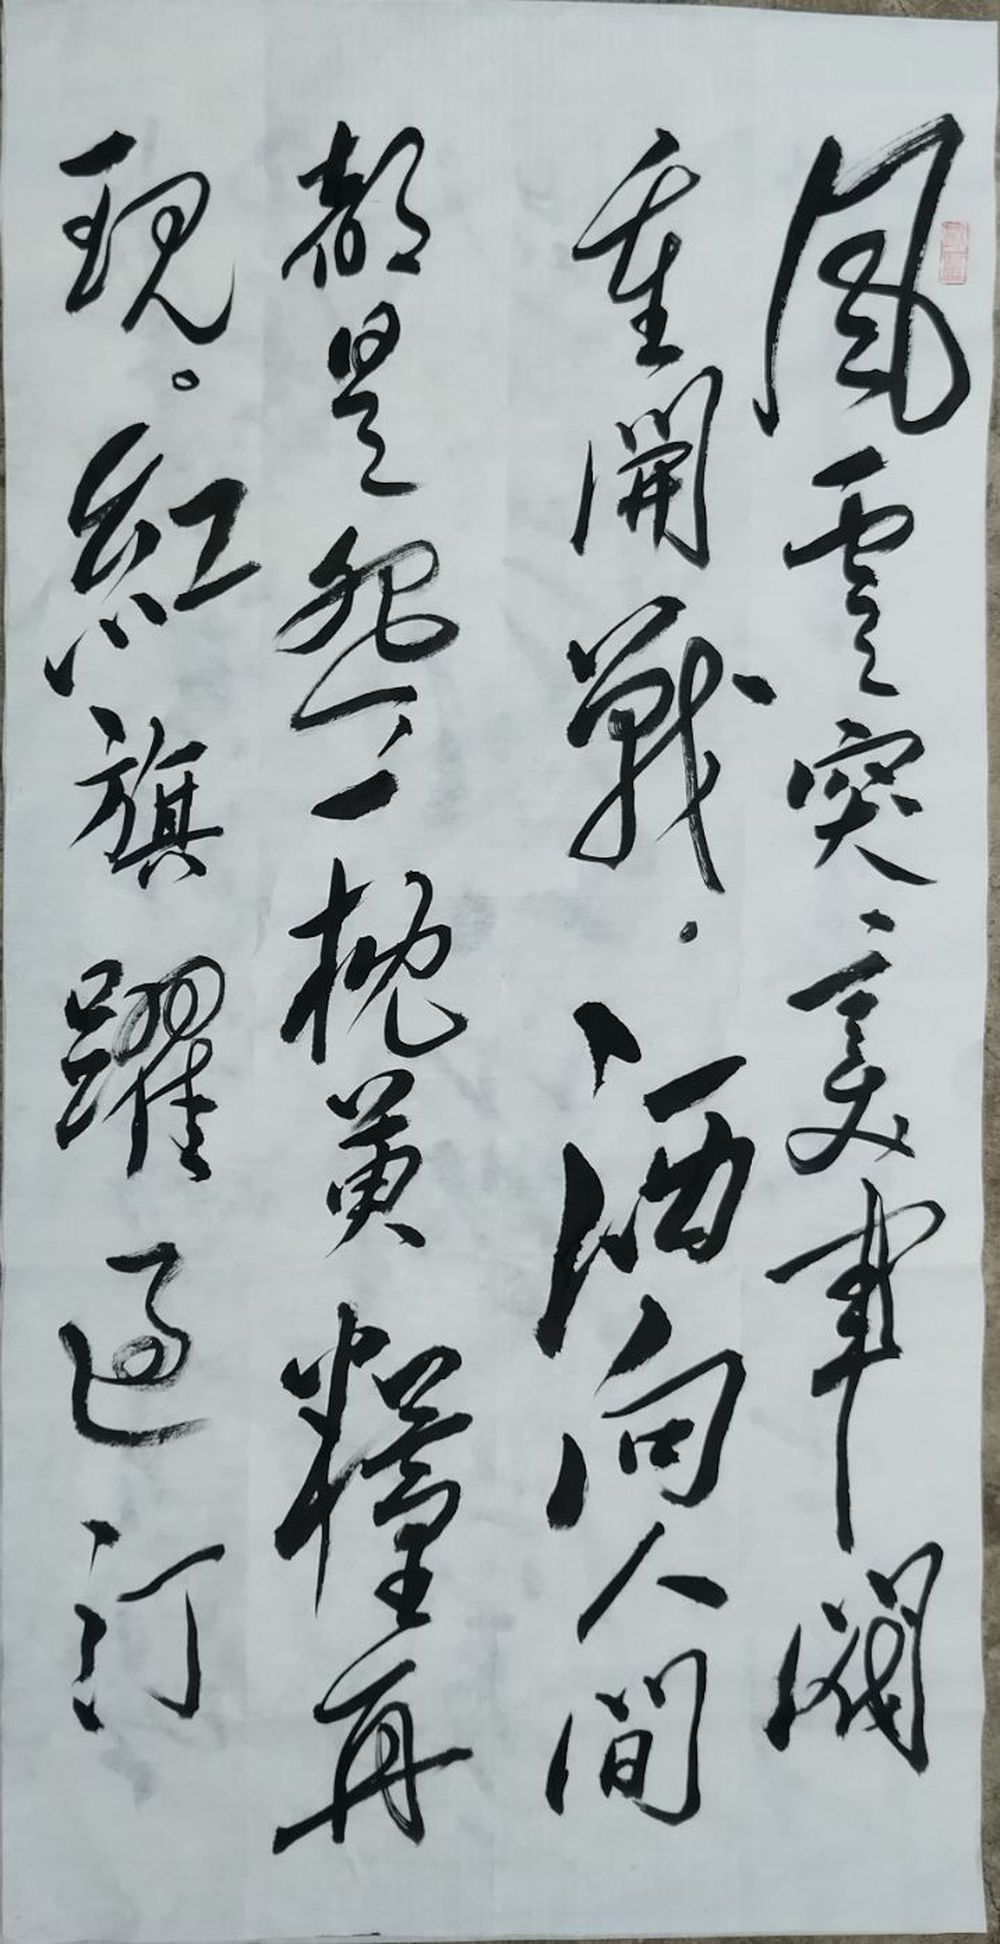 風雲突變軍閥
重開戰。洒向人間
都是怨一枕黄糧再
現。紅旗躍過汀